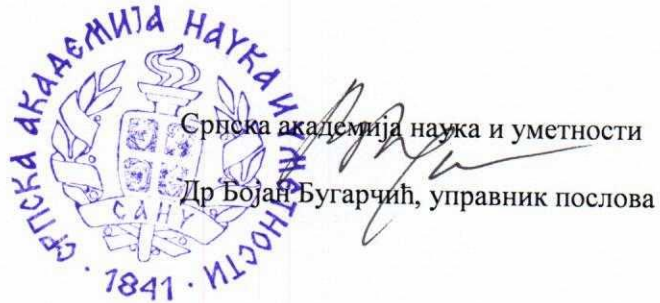 СРПСКА АКАДЕМИЈА НАУКА И УМЕТНОСТИ
САНУ
· 1841 ·
Српска академија наука и уметности
Др Бојан Бугарчић, управник послова